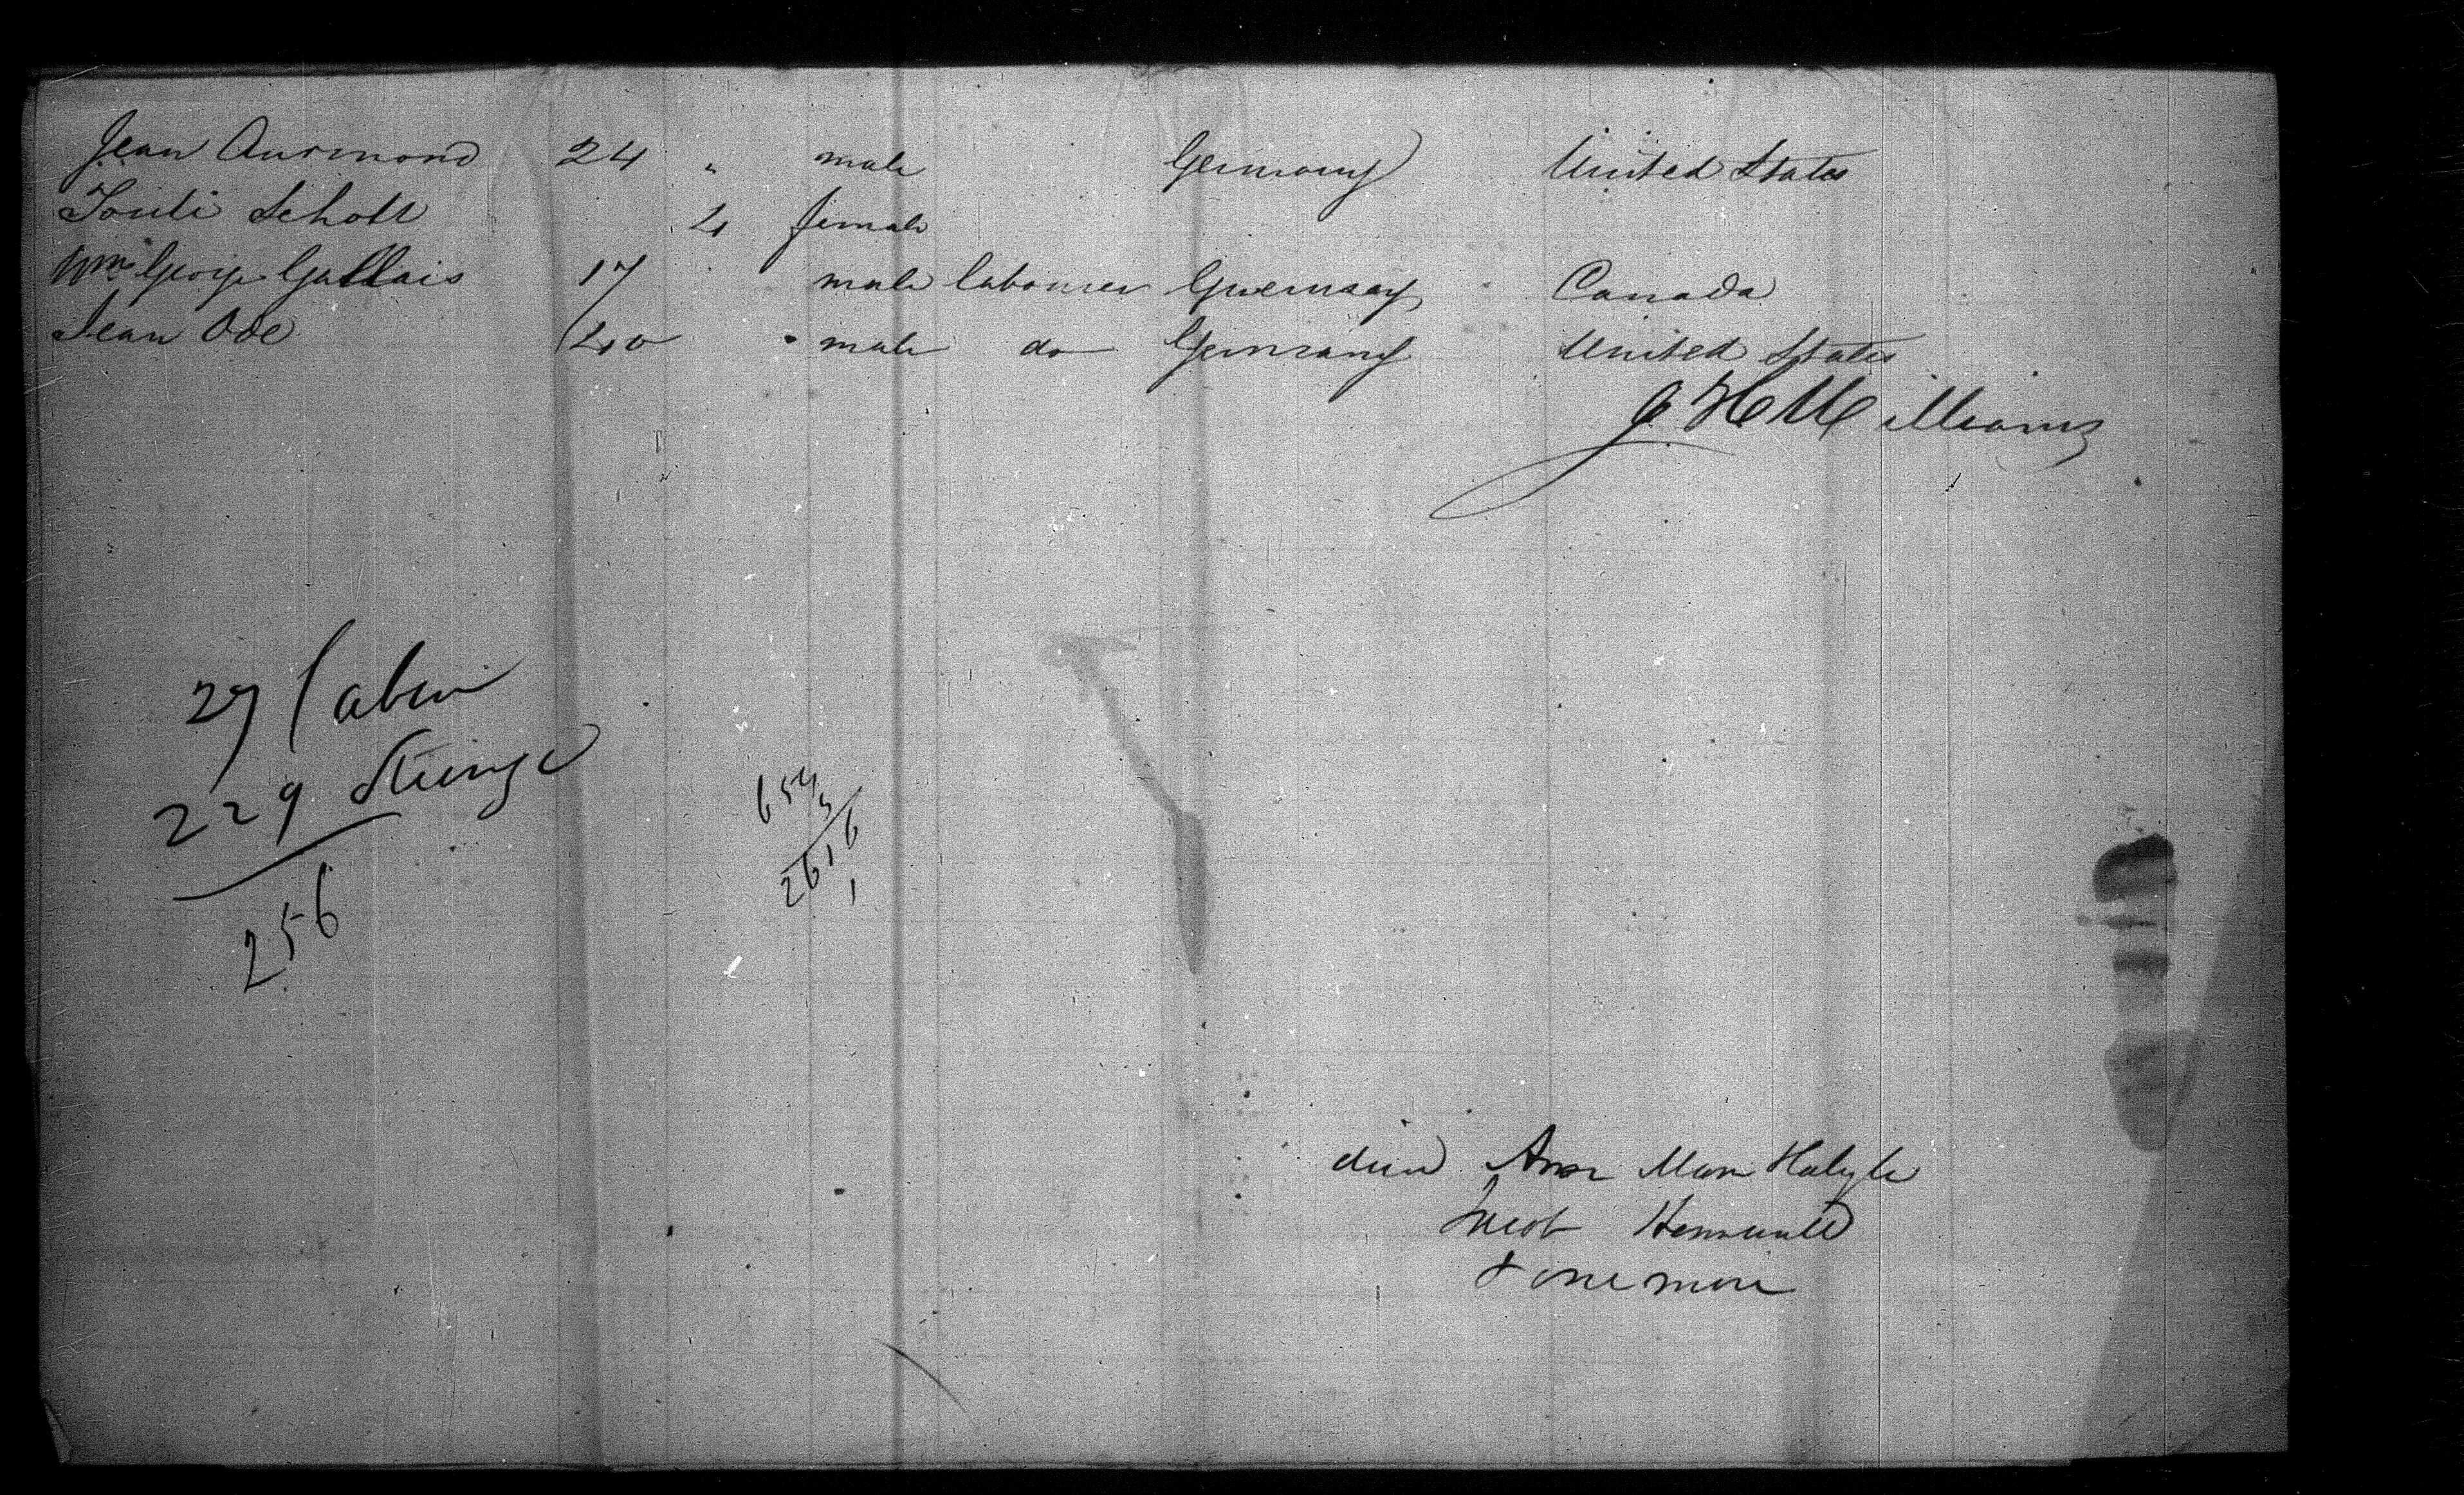 Jean Aurmond 24 " male Germany United States
Schott 4 female
Wm George Gallais 17 male labourer Guernsey Canada
Jean Ode 40 male do Germany United States
J H Williams
27 Cabin
229 Steerage
256
654
2616
1
died Ann Mary
Jacob
& one more